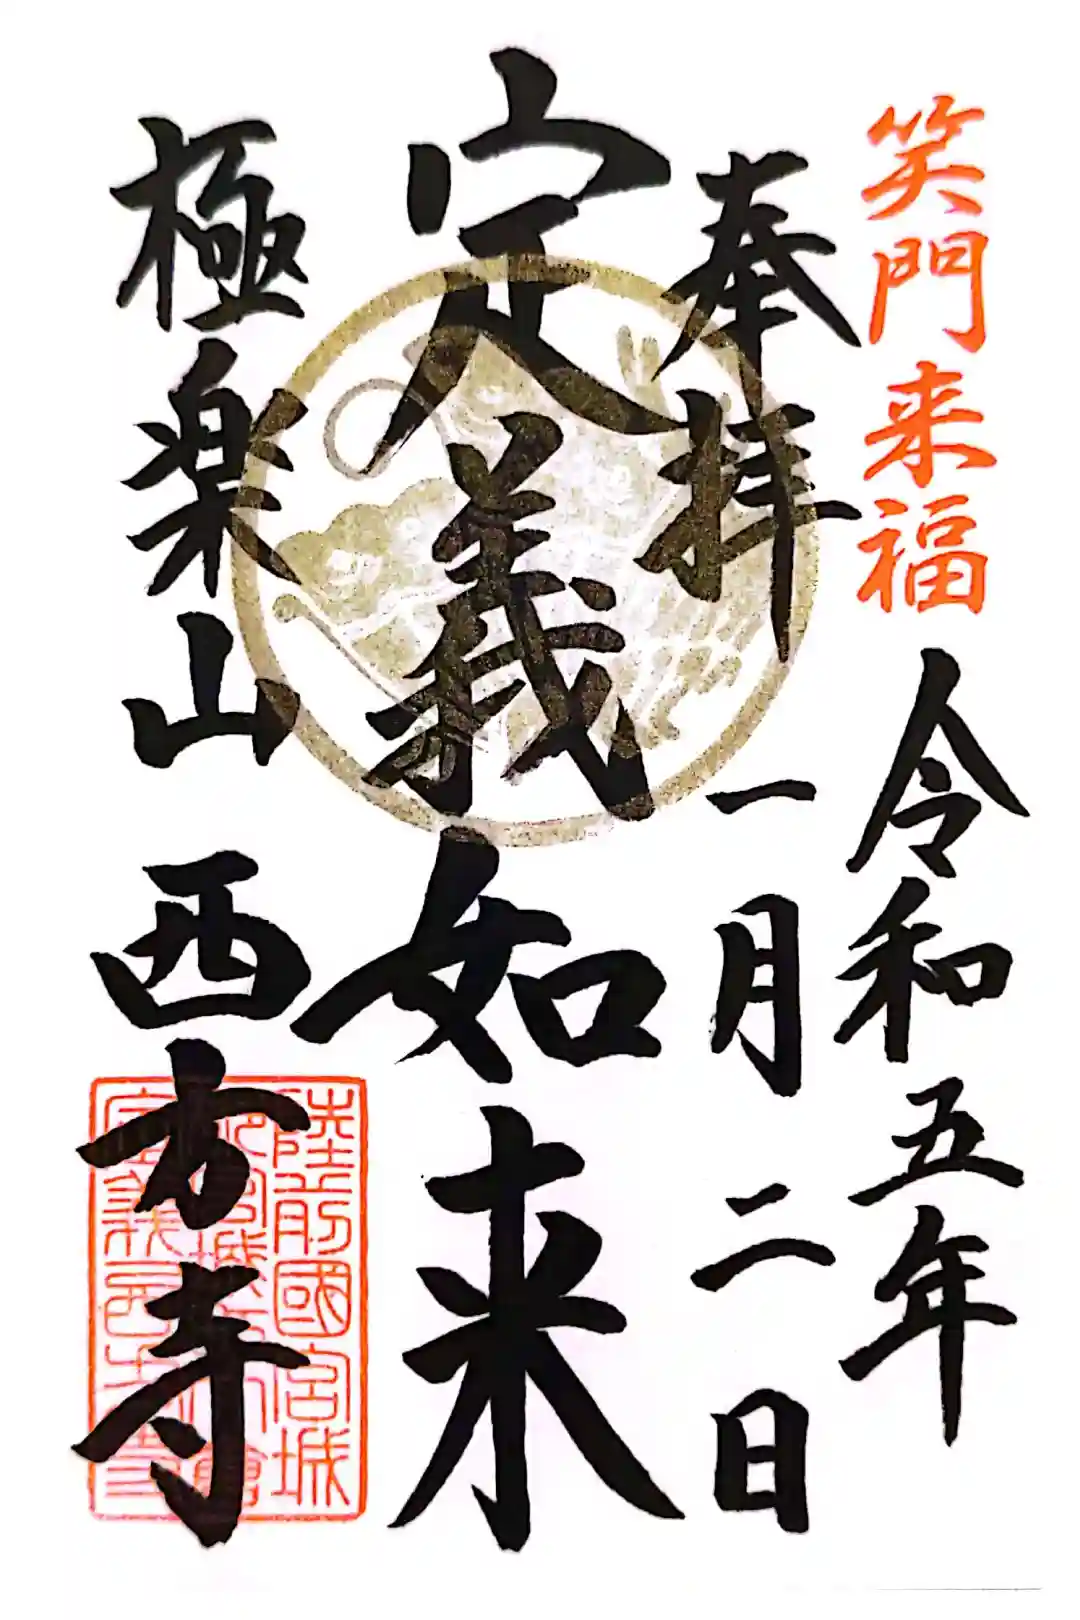 笑門来福
令和五年
奉拝
一月二日
定義如来
極楽山 西方寺
陸前國宮城